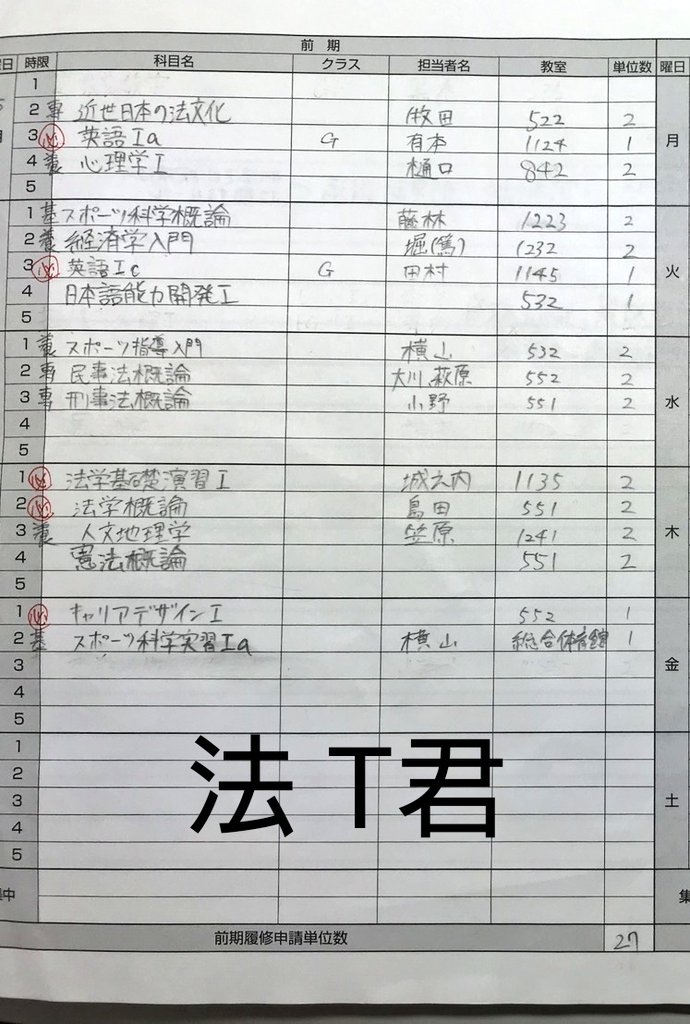 前期
曜日 時限 科目名 クラス 担当者名 教室 単位数 曜日
1
2 専 近世日本の法文化 牧田 522 2
3 必 英語Ia G 有本 1124 1 月
4 養 心理学I 樋口 842 2
5
1 基 スポーツ科学概論 藤林 1223 2
2 養 経済学入門 堀(篤) 1232 2
3 必 英語Ic G 田村 1145 1 火
4 日本語能力開発I 532 1
5
1 養 スポーツ指導入門 横山 532 2
2 専 民事法概論 大川、萩原 552 2
3 専 刑事法概論 小野 551 2 水
4
5
1 必 法学基礎演習I 城之内 1135 2
2 必 法学概論 島田 551 2
3 養 人文地理学 笠原 1241 2 木
4 憲法概論 551 2
5
1 必 キャリアデザインI 552 1
2 基 スポーツ科学実習Ia 横山 総合体育館 1
3 金
4
5
1
2
3 土
4
5
法 T君
中 集
前期履修申請単位数 27